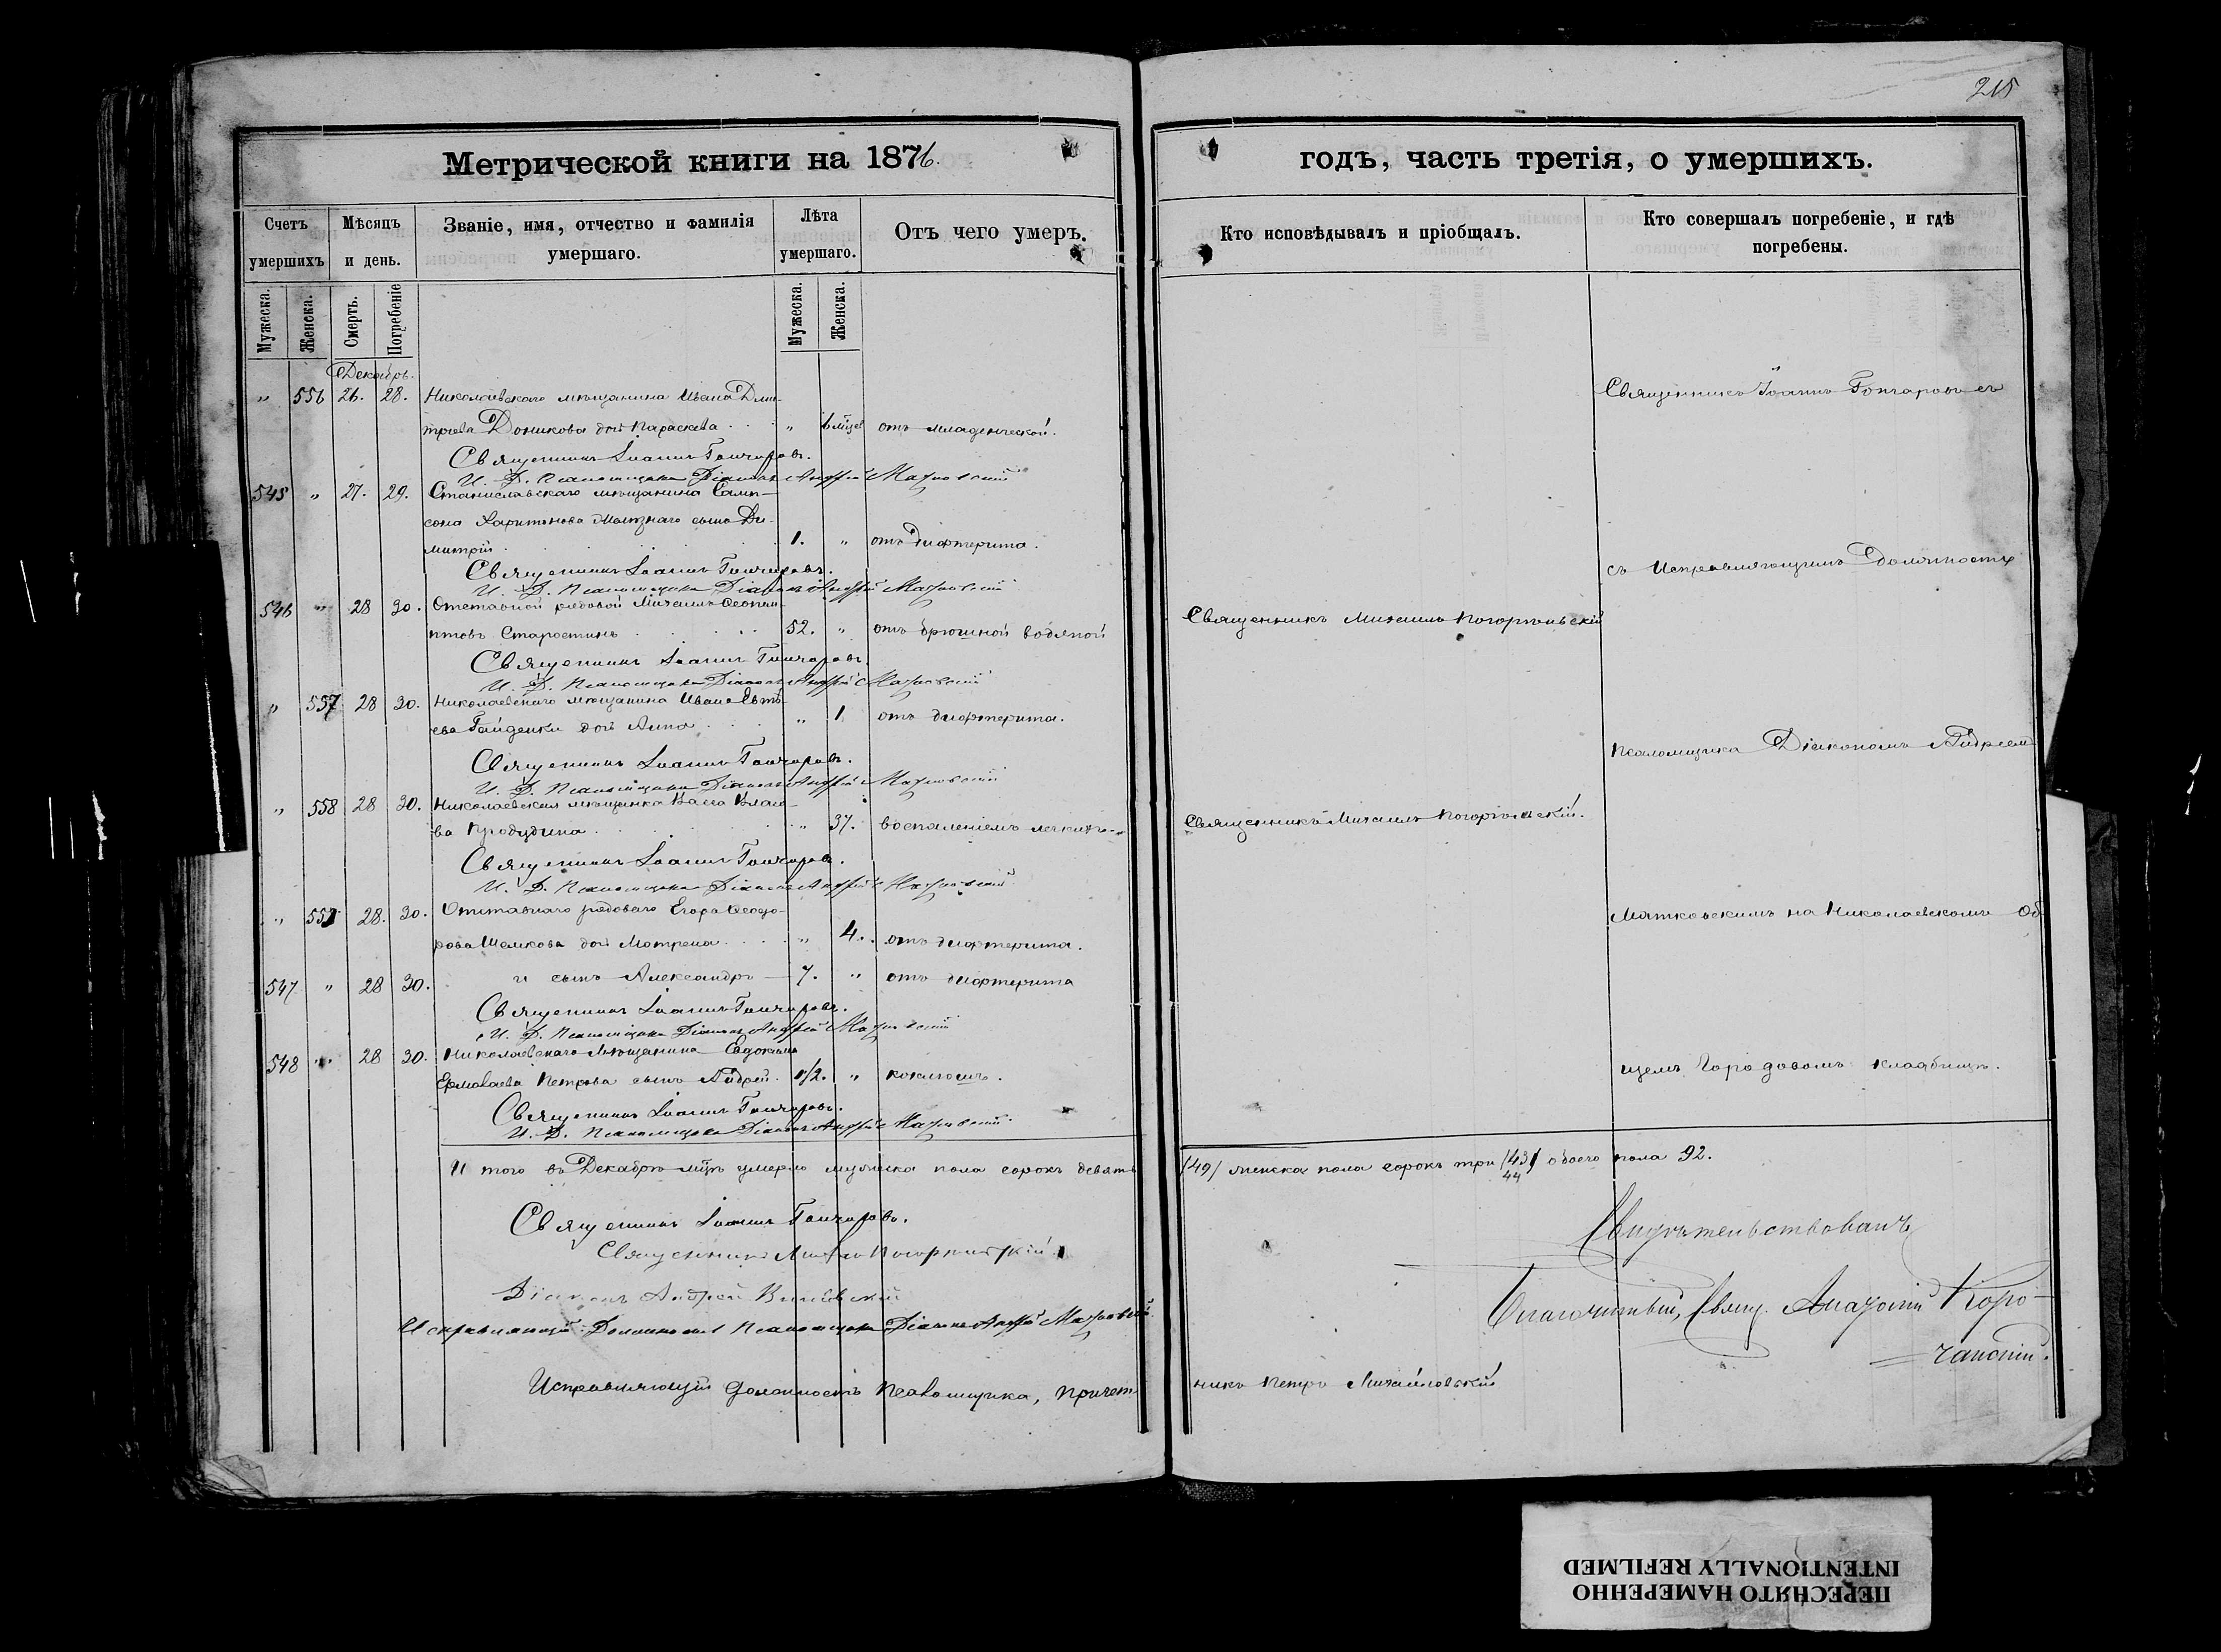 215
Метрической книги на 1876.
годъ, часть третія, о умершихъ.
Счетъ умершихъ
Мѣсяцъ и день.
Званіе, имя, отчество и фамилія умершаго.
Лѣта умершаго.
Отъ чего умеръ.
Кто исповѣдывалъ и пріобщалъ.
Кто совершалъ погребеніе, и гдѣ погребены.
Мужеска.
Женска.
Смерть.
Погребеніе
Мужеска.
Женска.
Декабрь.
" 556 26. 28. Николаевскаго мѣщанина Ивана Дми-
трiева Доникова дочь Параскева " 6 мѣсе отъ младенческой.
Священникъ Іоаннъ Гончаровъ съ
Священникъ Іоаннъ Гончаровъ.
И. Д. Псаломщика Діаконъ Андрей
545 " 27. 29. Станиславскаго мѣщанина Самп-
сона Харитонова сынъ Ди-
митрій 1. " отъ дифтерита.
Священникъ Іоаннъ Гончаровъ.
И. Д. Псаломщика Діаконъ Андрей
съ Исправляющимъ Должность
546 " 28 30. Отставной рядовой Михаилъ
Старостинъ 52. " отъ брюшной водяной
Священникъ Михаилъ Погорѣльскій
Священникъ Іоаннъ Гончаровъ.
И. Д. Псаломщика Діаконъ Андрей
" 557 28 30. Николаевскаго мѣщанина Ивана
ева Гайденки дочь Анна " 1 отъ дифтерита.
Псаломщика Діакономъ Андреемъ
Священникъ Іоаннъ Гончаровъ.
И. Д. Псаломщика Діаконъ Андрей
" 558 28 30. Николаевская мѣщанка
ва " 37. воспаленіемъ легкихъ
Священникъ Михаилъ Погорѣльскій.
Священникъ Іоаннъ Гончаровъ.
И. Д. Псаломщика Діаконъ Андрей
" 559 28. 30. Отставнаго рядоваго Егора Ѳеодо-
рова Шелкова дочь Мотрена " 4. отъ дифтерита.
на Николаевскомъ Об
547 " 28 30. и сынъ Александръ 7. " отъ дифтерита
Священникъ Іоаннъ Гончаровъ.
И. Д. Псаломщика Діаконъ Андрей
548 " 28 30. Николаевскаго Мѣщанина Евдокима
Ермолаева Петрова сынъ Андрей 1/2. " коклюшъ.
щемъ Городовомъ кладбищѣ.
Священникъ Іоаннъ Гончаровъ.
И. Д. Псаломщика Діаконъ Андрей
И того въ Декабрѣ мѣсяцѣ умерло мужеска пола сорокъ девять
/49/ женска пола сорокъ три /43/ обоего пола 92.
44
Священникъ Іоаннъ Гончаровъ.
Свидѣтельствовалъ
Священникъ Михаилъ Погорѣльскій
Діаконъ Андрей
Благочинный, Свящ.
Исправляющій Должность Псаломщика Діаконъ Андрей
Исправляющій должность Псаломщика, Причет
никъ Петръ Михайловскій
ПЕРЕСНЯТО НАМЕРЕННО
INTENTIONALLY REFILMED